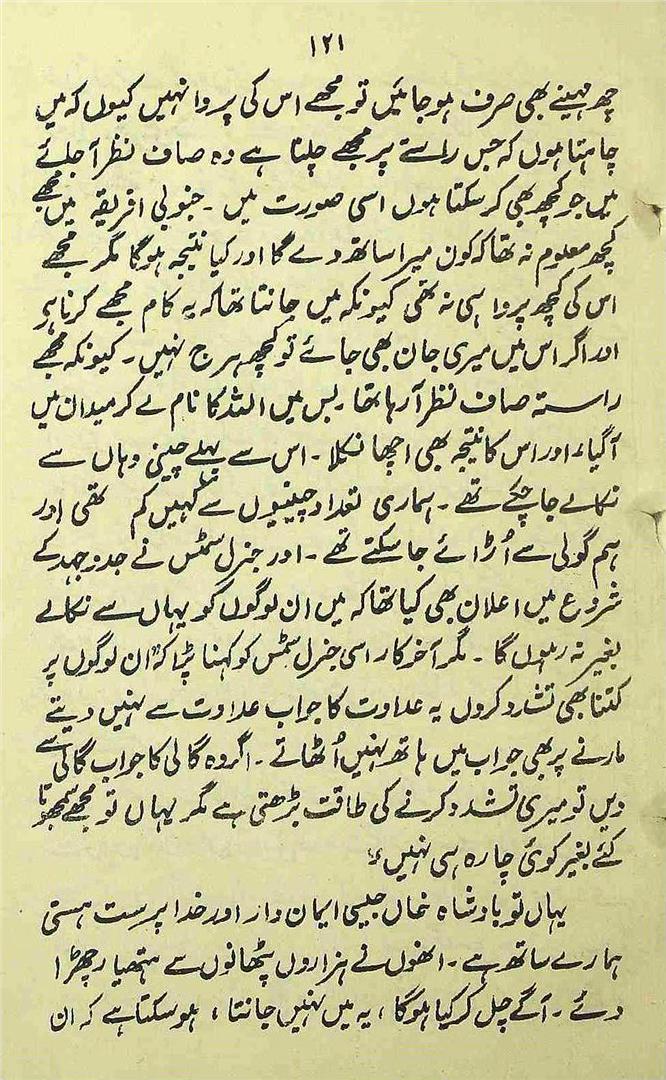 ۱۲۱
چھ مہینے بھی صرف ہو جائیں تو مجھے اس کی پروا نہیں کیوں کہ میں
چاہتا ہوں کہ جس راستے پر مجھے چلنا ہے وہ صاف نظر آ جائے
میں جو کچھ بھی کر سکتا ہوں اسی صورت میں ۔ جنوبی افریقہ میں مجھے
کچھ معلوم نہ تھا کہ کون میرا ساتھ دے گا اور کیا نتیجہ ہوگا مگر مجھے
اس کی کچھ پروا ہی نہ تھی کیونکہ میں جانتا تھا کہ یہ کام مجھے کرنا ہے
اور اگر اس میں میری جان بھی جائے تو کچھ ہرج نہیں ۔ کیونکہ مجھے
راستہ صاف نظر آ رہا تھا ۔ بس میں اللہ کا نام لے کر میدان میں
آ گیا، اور اس کا نتیجہ بھی اچھا نکلا ۔ اس سے پہلے چینی وہاں سے
نکالے جا چکے تھے ۔ ہماری تعداد چینیوں سے کہیں کم تھی اور
ہم گولی سے اُڑائے جا سکتے تھے ۔ اور جنرل سمٹس نے جدوجہد کے
شروع میں اعلان بھی کیا تھا کہ میں ان لوگوں کو یہاں سے نکالے
بغیر نہ رہوں گا ۔ مگر آخر کار اسی جنرل سمٹس کو کہنا پڑا کہ "ان لوگوں پر
کتنا بھی تشدد کروں یہ عداوت کا جواب عداوت سے نہیں دیتے
مارنے پر بھی جواب میں ہاتھ نہیں اُٹھاتے ۔ اگر وہ گالی کا جواب گالی سے
دیں تو میری تشدد کرنے کی طاقت بڑھتی ہے مگر یہاں تو مجھے سمجھوتا
کئے بغیر کوئی چارہ ہی نہیں"
یہاں تو بادشاہ خاں جیسی ایمان دار اور خدا پرست ہستی
ہمارے ساتھ ہے ۔ انھوں نے ہزاروں پٹھانوں سے ہتھیار چھڑا
دئے ۔ آگے چل کر کیا ہوگا، یہ میں نہیں جانتا، ہو سکتا ہے کہ ان